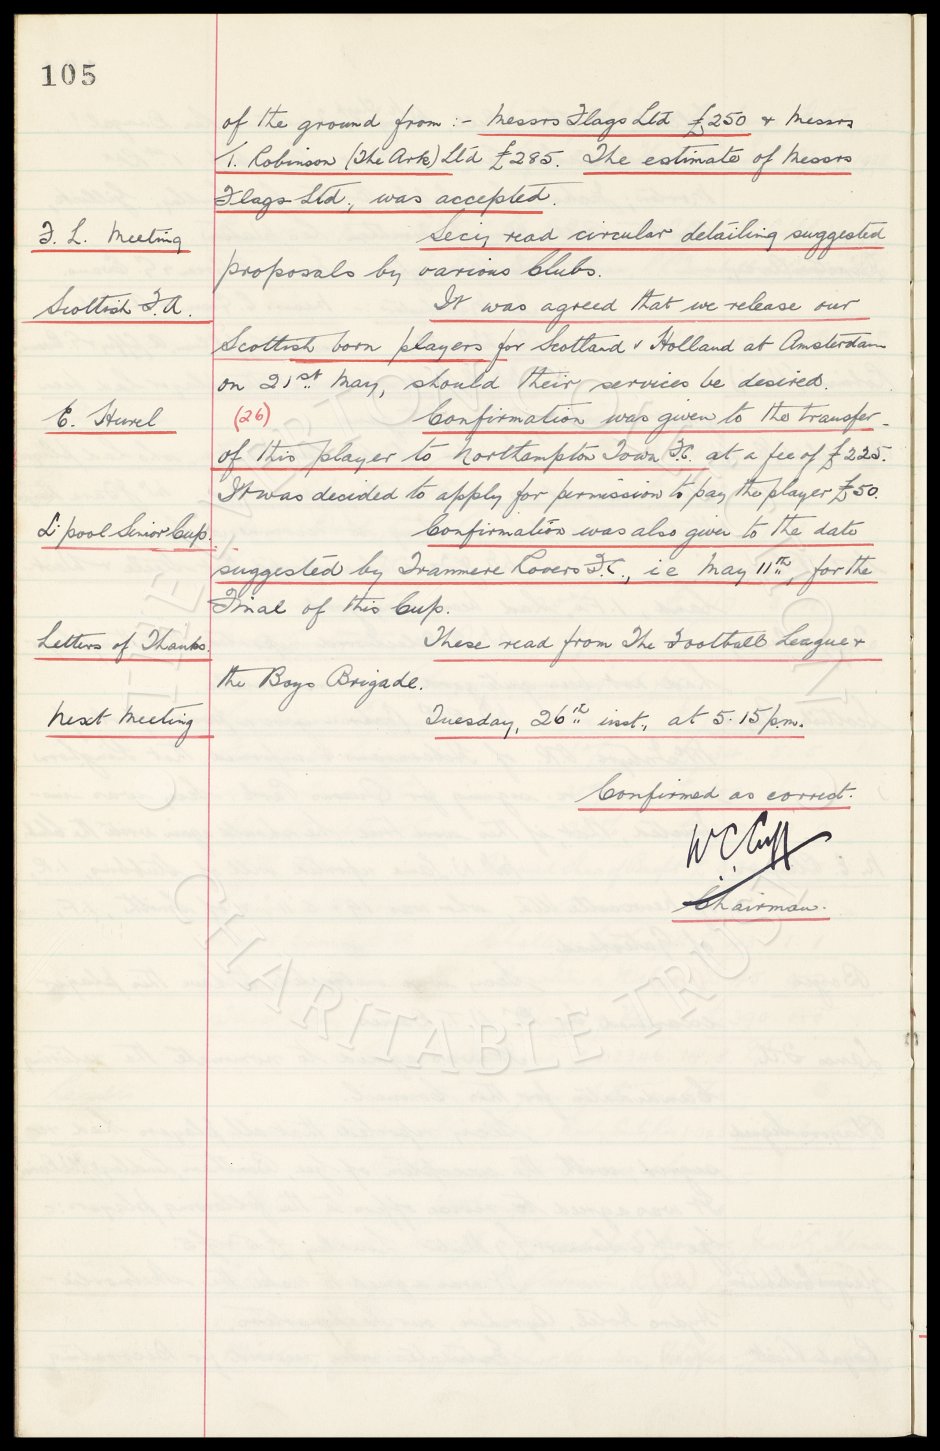 105
of the ground from :- Messrs Flags Ltd £250 & Messrs
T. Robinson (The Ark) Ltd £285. The estimate of Messrs
Flags Ltd., was accepted.
F. L. Meeting Secy read circular detailing suggested
proposals by various Clubs.
Scottish F.A. It was agreed that we release our
Scottish born players for Scotland v Holland at Amsterdam
on 21st May, should their services be desired.
E. Hurel (26) Confirmation was given to the transfer
of this player to Northampton Town F.C. at a fee of £225.
It was decided to apply for permission to pay the player £50.
L'pool Senior Cup. Confirmation was also given to the date
suggested by Tranmere Rovers F.C., i e May 11th, for the
Final of this Cup.
Letters of Thanks. These read from The Football League &
the Boys Brigade.
Next Meeting Tuesday, 26th inst., at 5.15 p.m.
Confirmed as correct.
W C Cuff
Chairman.
CHARITABLE TRUST